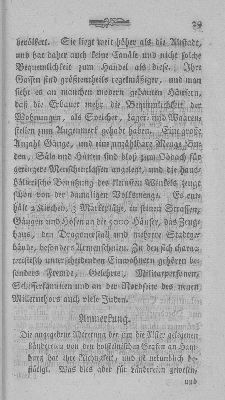 39
bevölkert. Sie liegt weit höher als die Altstadt,
und hat aber auch keine Canäle und nicht solche
Bequemlichkeit zum Handel als diese. Ihre
Gassen sind größtentheils regelmäßiger, und man
sieht es an manchen modern gebauten Häusern,
daß die Erbauer mehr die Bequemlichkeit der
Wohnungen, als Speicher, Lager- und Waaren-
stellen zum Augenmerk gehabt haben. Eine große
Anzahl Gänge, und eine unzählbare Menge Buden,
Säle und Hütten sind bloß zum Obdach für
geringere Menschenklassen angelegt, und die haus-
hälterische Benutzung des kleinsten Winkels zeugt
schon von der damaligen Volksmenge. Es ent-
hält 2 Kirchen, 3 Marktplätze, in seinen Strassen,
Gängen und Höfen an die Häuser, das Zeug-
haus, den Dragonerstall und mehrere Stadtge-
bäude, besonders Armenschulen. Zu den sich charac-
teristisch unterscheidenden Einwohnern gehören be-
sonders Fremde, Gelehrte, Militairpersonen,
Schiffercapitainen und an der Nordseite des neuen
Millernthors auch viele Juden.
Anmerkung.
Die angegebene Abtretung der um die Alster gelegenen
Ländereien von den holsteinischen Grafen an Ham-
burg hat ihre Richtigkeit, und ist urkundlich be-
stätigt. Was dies aber für Ländereien gewesen,
und